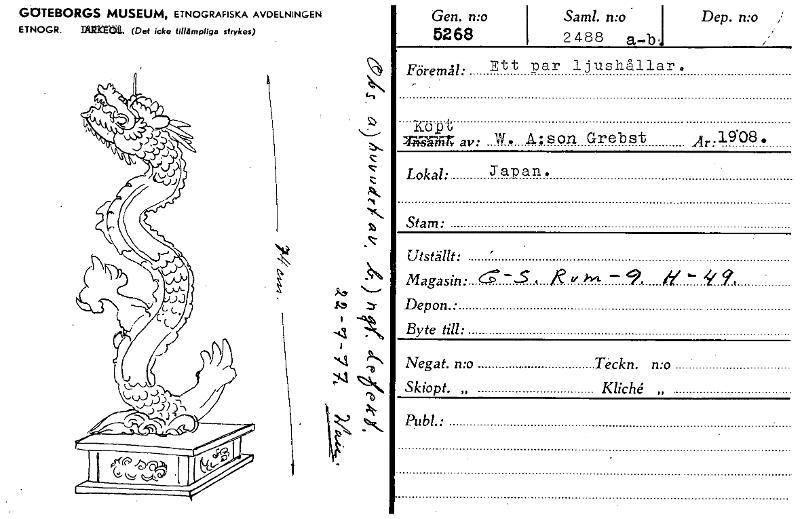 GÖTEBORGS MUSEUM, ETNOGRAFISKA AVDELNINGEN
ETNOGR. ARKEOL. (Det icke tillämpliga strykes)
74 cm.
Obs. a) huvudet av. b) ngt. defekt.
22-9-77.
Gen. n:o
5268
Saml. n:o
2488 a-b.
Dep. n:o
Föremål: Ett par ljushållar.
Köpt
Insaml. av: W. A:son Grebst År: 1908.
Lokal: Japan.
Stam:
Utställt:
Magasin: G-S. Rum-9. H-49.
Depon.:
Byte till:
Negat. n:o Teckn. n:o
Skiopt. „ Kliché „
Publ.: